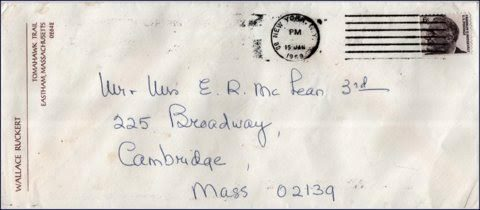 WALLACE RUCKERT
TOMAHAWK TRAIL
EASTHAM, MASSACHUSETTS
NEW YORK, N.Y.
PM
15 JAN
1969
Mr + Mrs E. R. McLean 3rd
225 Broadway,
Cambridge,
Mass 02139